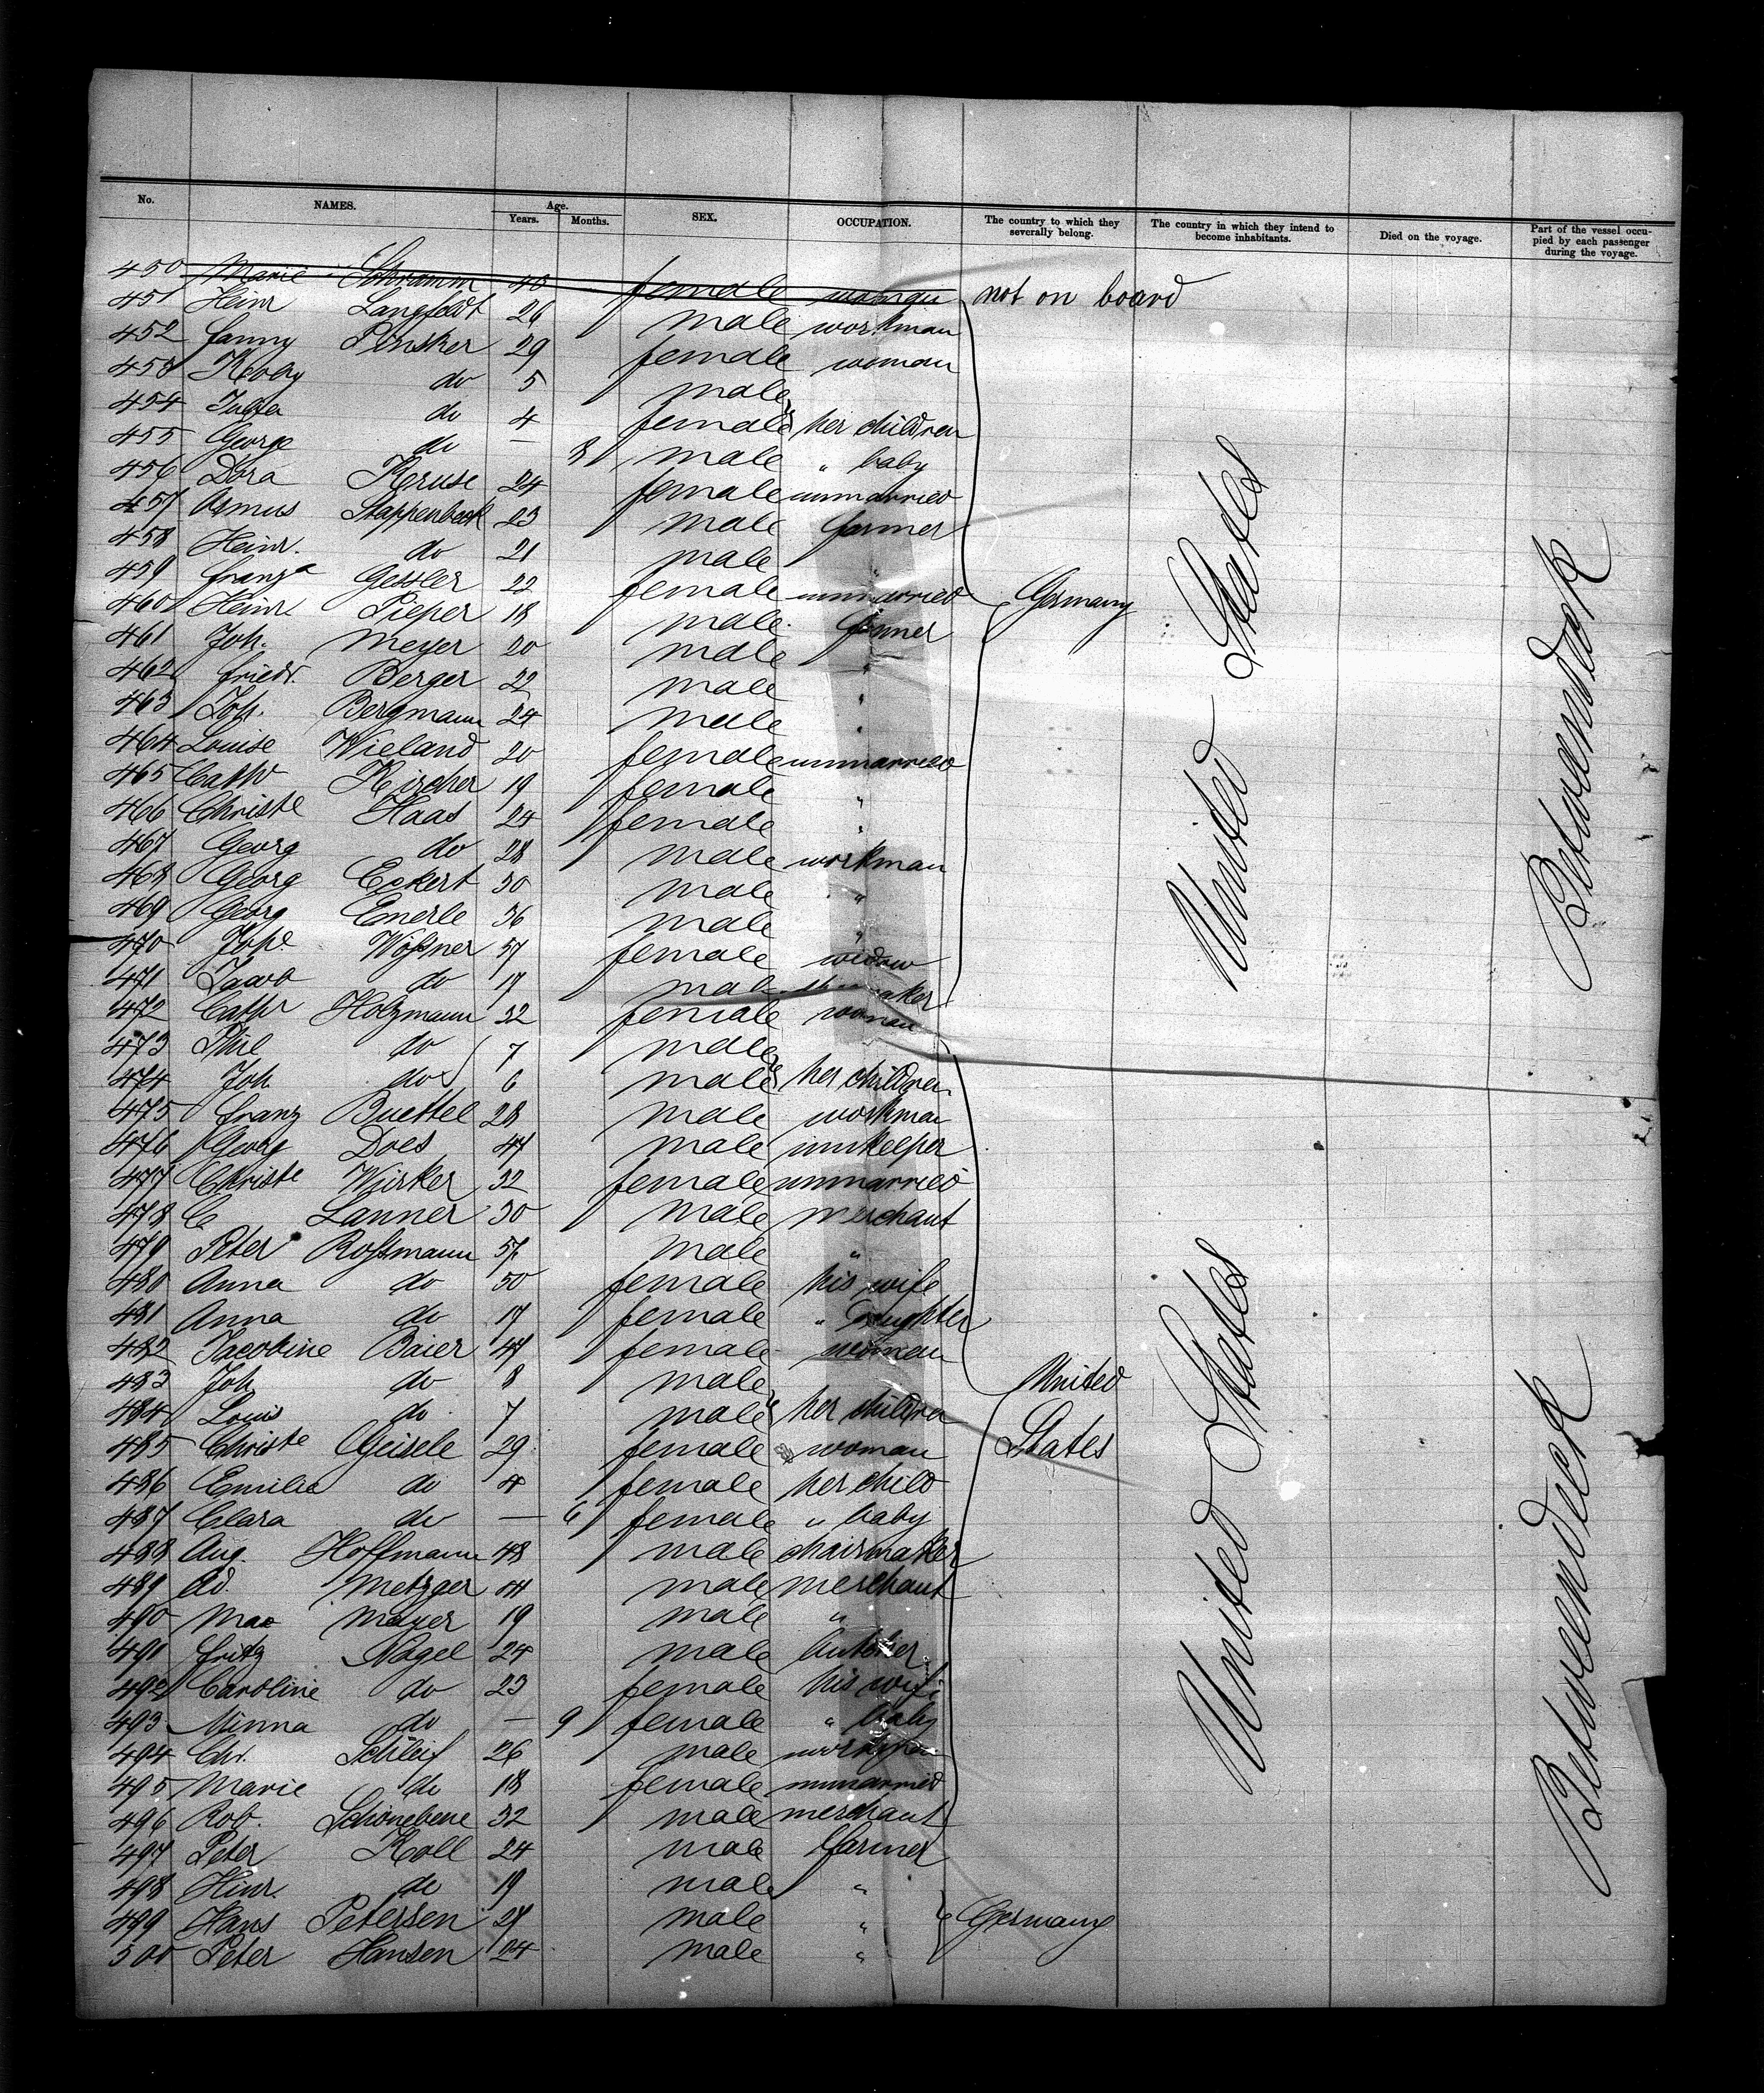 No. NAMES. Age. Years. Months. SEX. OCCUPATION. The country to which they severally belong. The country in which they intend to become inhabitants. Died on the voyage. Part of the vessel occupied by each passenger during the voyage.
450 Marie Schramm 40 female woman not on board
451 Heinr Langfeldt 26 male workman
452 Fanny Pinsker 29 female woman
453 do 5 male
454 do 4 female her children
455 George do — 8 male " baby
456 Dora Kruse 24 female unmarried
457 Asmus Stappenbeck 23 male farmer
458 Heinr. do 21 male "
459 Franza Gessler 22 female unmarried
460 Heinr Pieper 18 male farmer
Germany
461 Joh. Meyer 20 male "
462 Friedr. Berger 22 male "
463 Joh. Bergmann 24 male "
464 Louise Wieland 20 female unmarried
465 Cathr Kircher 19 female "
466 Christe Haas 24 female "
467 Georg do 28 male workman
468 Georg Eckert 30 male "
469 Georg Emerle 36 male "
470 Wößner 57 female widow
471 do 17 male
472 Cathr Holzmann 32 female woman
473 do 7 male
474 Joh do 6 male her children
475 Franz Buettel 28 male workman
476 Georg Does 47 male innkeeper
477 Christe Wirker 32 female unmarried
478 C Lanner 30 male merchant
479 Peter Roßmann 57 male "
480 Anna do 50 female his wife
481 Anna do 17 female " daughter
482 Jacobine Baier 47 female woman
483 Joh do 8 male
484 Louis do 7 male her children
485 Christe Geisele 29 female woman
United States
486 Emilie do 4 female her child
487 Clara do — 6 female " baby
488 Aug. Hoffmann 48 male chairmaker
489 Ad. Metzger 41 male merchant
490 Max Mayer 19 male "
491 Fritz Nagel 24 male butcher
492 Caroline do 23 female his wife
493 Minna do — 9 female " baby
494 Chr. Schleif 26 male workman
495 Marie do 18 female unmarried
496 Rob. Schönebene 32 male merchant
497 Peter Koll 24 male farmer
498 Hinr. do 19 male "
499 Hans Petersen 27 male "
500 Peter Hansen 24 male "
Germany
United States
United States
Betweendeck
Betweendeck